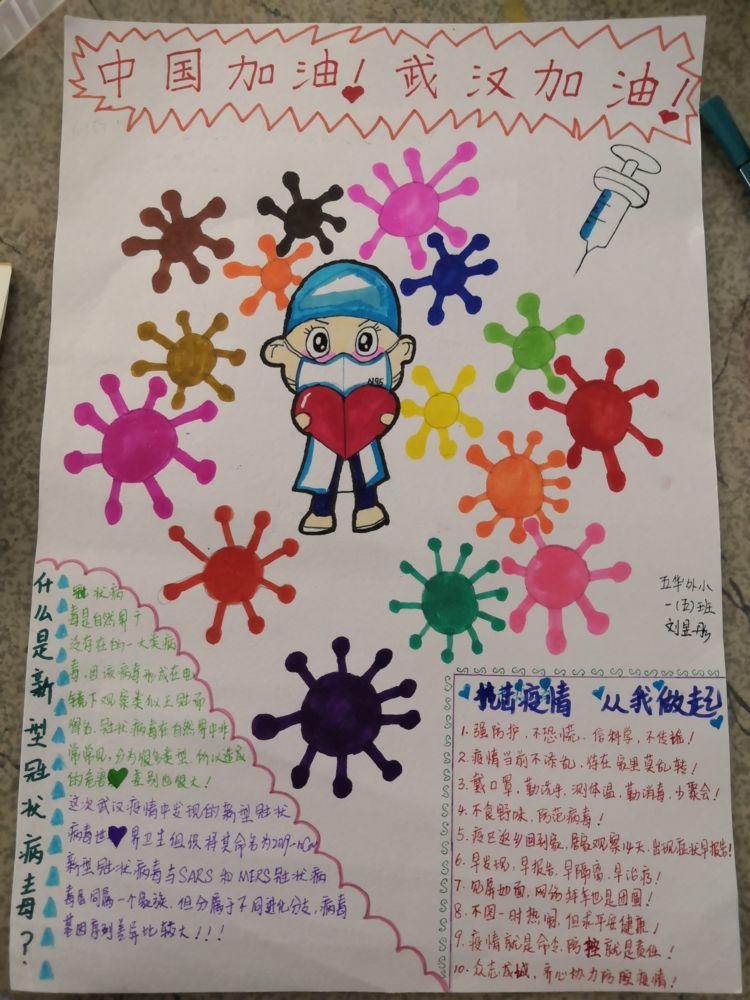 中国加油！武汉加油！
N95
五华外小
一(五)班
刘昱彤
什么是新型冠状病毒？
冠状病
毒是自然界广
泛存在的一大类病
毒，因该病毒形成在电
镜下观察类似王冠而
得名，冠状病毒在自然界中非
常常见，分为很多类型，所以造成
的危害差别也很大！
这次武汉疫情中发现的新型冠状
病毒世界卫生组织将其命名为2019-nCoV
新型冠状病毒与SARS和MERS冠状病
毒虽同属一个家族，但分属于不同进化分支，病毒
基因序列差异比较大！！！
抗击疫情 从我做起
1. 强防护，不恐慌，信科学，不传谣！
2. 疫情当前不添乱，待在家里莫乱转！
3. 戴口罩，勤洗手，测体温，勤消毒，少聚会！
4. 不食野味，防范病毒！
5. 疫区返乡回到家，居家观察14天，出现症状早报告！
6. 早发现，早报告，早隔离，早治疗！
7. 见屏如面，网络拜年也是团圆！
8. 不图一时热闹，但求平安健康！
9. 疫情就是命令，防控就是责任！
10. 众志成城，齐心协力防控疫情！